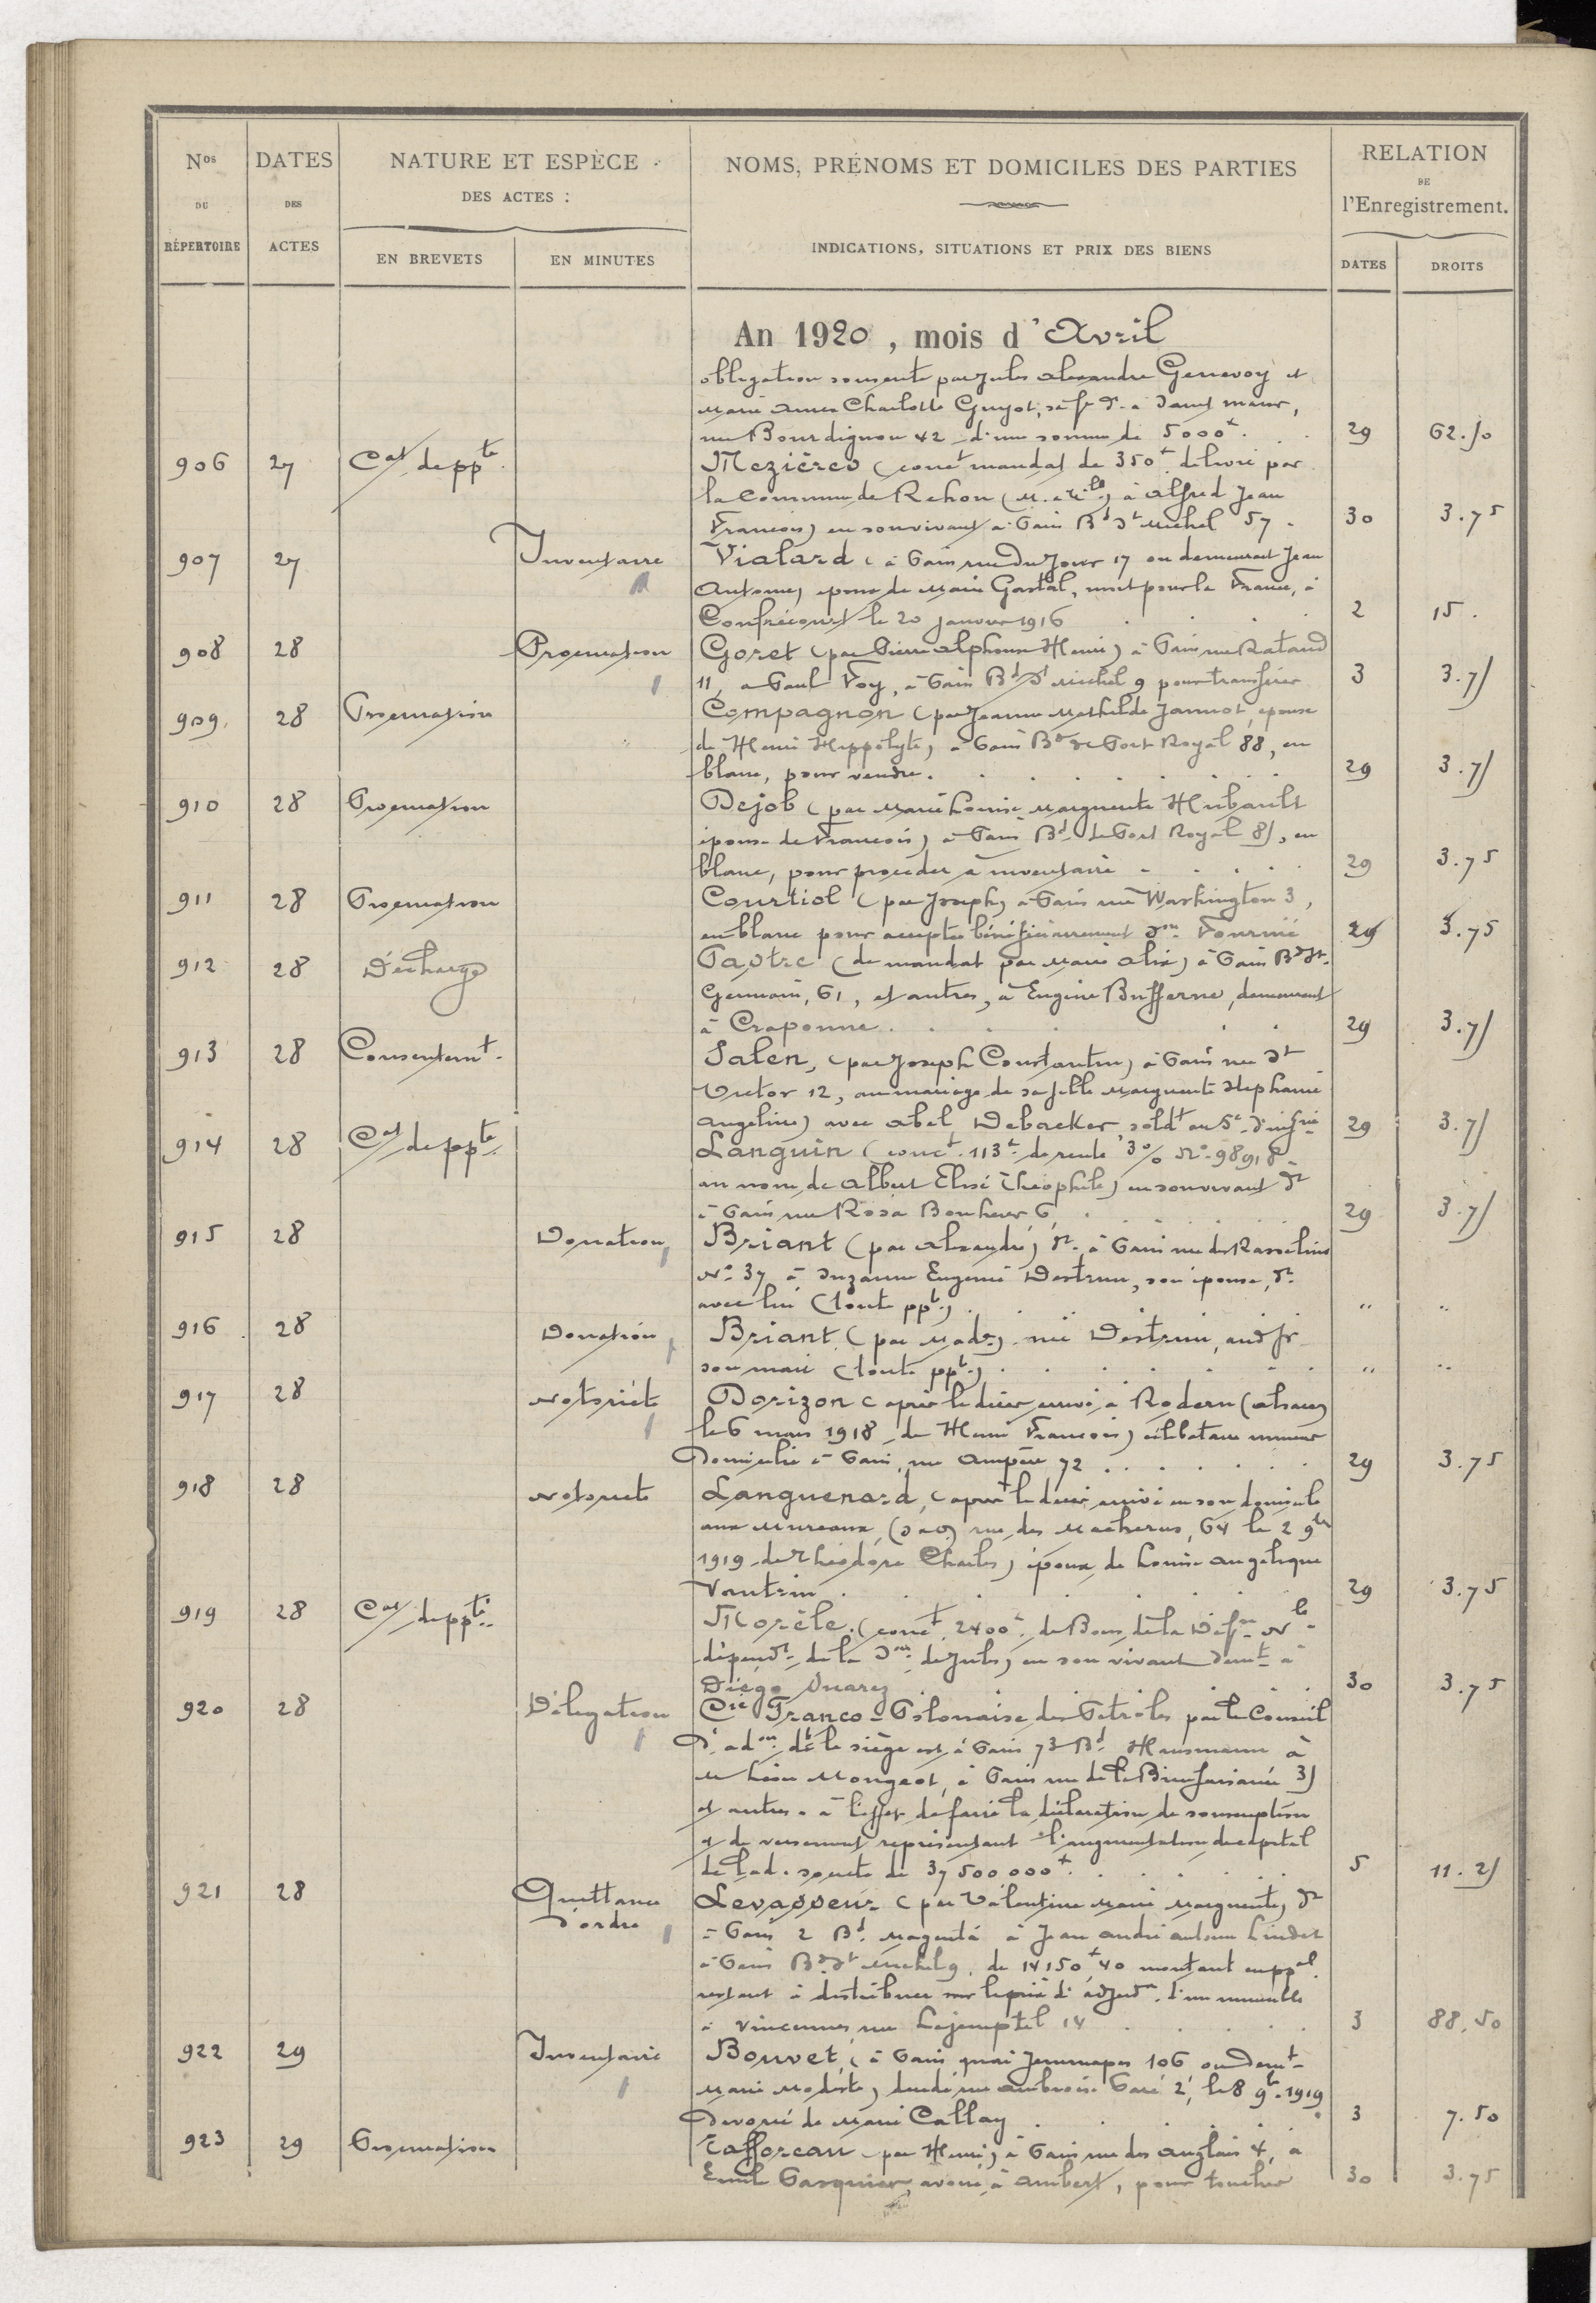 Nos DU RÉPERTOIRE
DATES DES ACTES
NATURE ET ESPÈCE DES ACTES :
EN BREVETS
EN MINUTES
NOMS, PRÉNOMS ET DOMICILES DES PARTIES
INDICATIONS, SITUATIONS ET PRIX DES BIENS
RELATION DE l'Enregistrement.
DATES
DROITS
An 1920, mois d'Avril
obligation souscrite par Jules Alexandre Genevoy et
Marie Charlotte Guyot, sa fe dt à Saint Maur,
rue Bourdignon 42 d'une somme de 5000f. 29 62.50
906 27 Cat de ppté Mezières (conct mandat de 350f délivré par
la Commune de Rehon (M. et Mlle) à Alfred Jean
François) en son vivant à Paris Bd St Michel 57. 30 3.75
907 27 Inventaire Vialard (à Paris rue du Jour 17 où demeurait Jean
Antoine) époux de Marie Gastal, mort pour la France, à
Confrécourt le 20 janvier 1916 2 15.
908 28 Procuration Goret (par Pierre Alphonse Henri) à Paris rue Rataud
11, à Paul Foy, à Paris Bd St Michel 9 pour transférer 3 3.75
909 28 Procuration Compagnon (par Jeanne Mathilde Jannot, épouse
de Henri Hippolyte) à Paris Bd de Port Royal 88, en
blanc, pour vendre. 29 3.75
910 28 Procuration Dejob (par Marie Louise Marguerite Hubault
épouse de François) à Paris Bd de Port Royal 85, en
blanc, pour procéder à inventaire 29 3.75
911 28 Procuration Courtiol (par Joseph) à Paris rue Washington 3,
en blanc pour accepter bénéficiairement son Fournié 29 3.75
912 28 Décharge Pastre (de mandat par Marie Alix) à Paris Bd St
Germain, 61, et autres, à Eugène Bufferne, demeurant
à Craponne. 29 3.75
913 28 Consentemt. Salen, (par Joseph Constantin) à Paris rue St
Victor 12, au mariage de sa fille Marguerite Stephanie
Angeline) avec Abel Debacker, soldt au 5e d'infrie 29 3.75
914 28 Cat de ppté Languin (conct. 113f de rente 3% No 98918
au nom de Albert Elisé Théophile) en son vivant dt
à Paris rue Rosa Bonheur 6. 29 3.75
915 28 Donation Briant (par Alexandre) dt à Paris rue des
No 37 à Suzanne Eugénie Destrun, son épouse, dt
avec lui (toute ppté). " "
916 28 Donation Briant (par Made) née Destrun, aud. sr
son mari (toute ppté). " "
917 28 Notoriété Dorizon (après le décès arrivé à Rodern (Alsace)
le 6 mars 1918, de Henri François) célibataire mineur
Domicilié à Paris, rue Ampère 72. 29 3.75
918 28 Notoriété Languenard, (après le décès arrivé en son domicile
aux Mureaux, (S et O) rue des 64 le 2 9bre
1919 de Théodore Charles) époux de Louise Angélique
Vautrin. 29 3.75
919 28 Cat de ppté Morèle. (conct. 2400f. de Bons de la Défse Nle
dépendt de la Son de Jules) en son vivant demt à
Diégo Suarez 30 3.75
920 28 Délégation Cie Franco-Polonaise des Pétroles par le Conseil
d'adon dt le siège est à Paris 73 Bd. Hausmann à
M Léon Mougeot, à Paris rue de la Bienfaisance 35
et autres. à l'effet de faire la déclaration de souscription
et de versement représentant l'augmentation de capital
de lad. société de 37 500 000f. 5 11.25
921 28 Quittance d'ordre Levasseur (par Valentine Marie Marguerite) dt
à Paris 2 Bd. Magenta à Jean André Lindet
à Paris Bd St Michel 9. de 14150f,40 montant en ppal
restant à distribuer sur le prix d'adjudon. d'un immeuble
à Vincennes rue Lejemptel 14 3 88.50
922 29 Inventaire Bouvet (à Paris quai Jemmapes 106 où demt
Marie Modeste) décédé rue Ambroise Paré 2, le 8 9bre 1919
divorcé de Marie Callay 3 7.50
923 29 Procuration Tafforeau (par Henri) à Paris rue des Anglais 4, à
Emile Pasquier, avoué, à Ambert, pour toucher 30 3.75